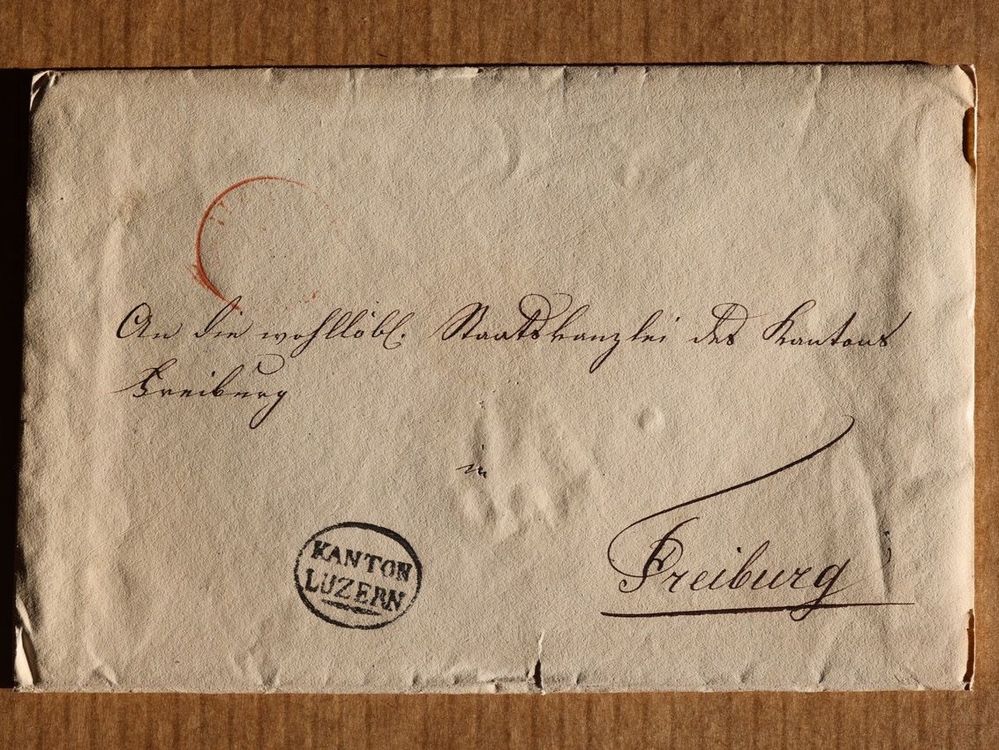 An die wohllöbl. Staatskanzlei des Kantons
Freiburg
in
Freiburg
KANTON
LUZERN